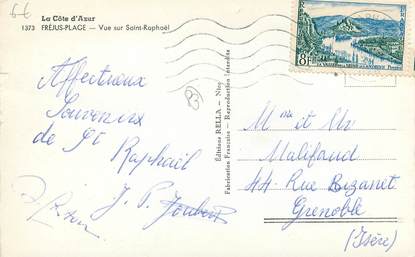 6€
La Côte d'Azur
1373 FRÉJUS-PLAGE — Vue sur Saint-Raphaël
8F
93
Affectueux
Souvenirs
de St
Raphaël
J. P. Joubert
Éditions RELLA — Nice
Fabrication Française — Reproduction Interdite
Mme et Mr
Malifaud
44 Rue Bizanet
Grenoble
(Isère)